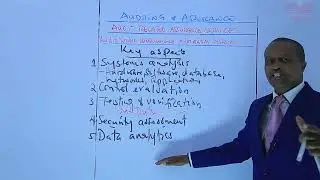 AUDITING & ASSURANCE
AUDIT RELATED ASSURANCE SERVICE
Key aspects
1 Systems analysis
- Hardware, software, database,
networks, application
2 Control evaluation
3 Testing & verification
4 Security assessment
5 Data analytics